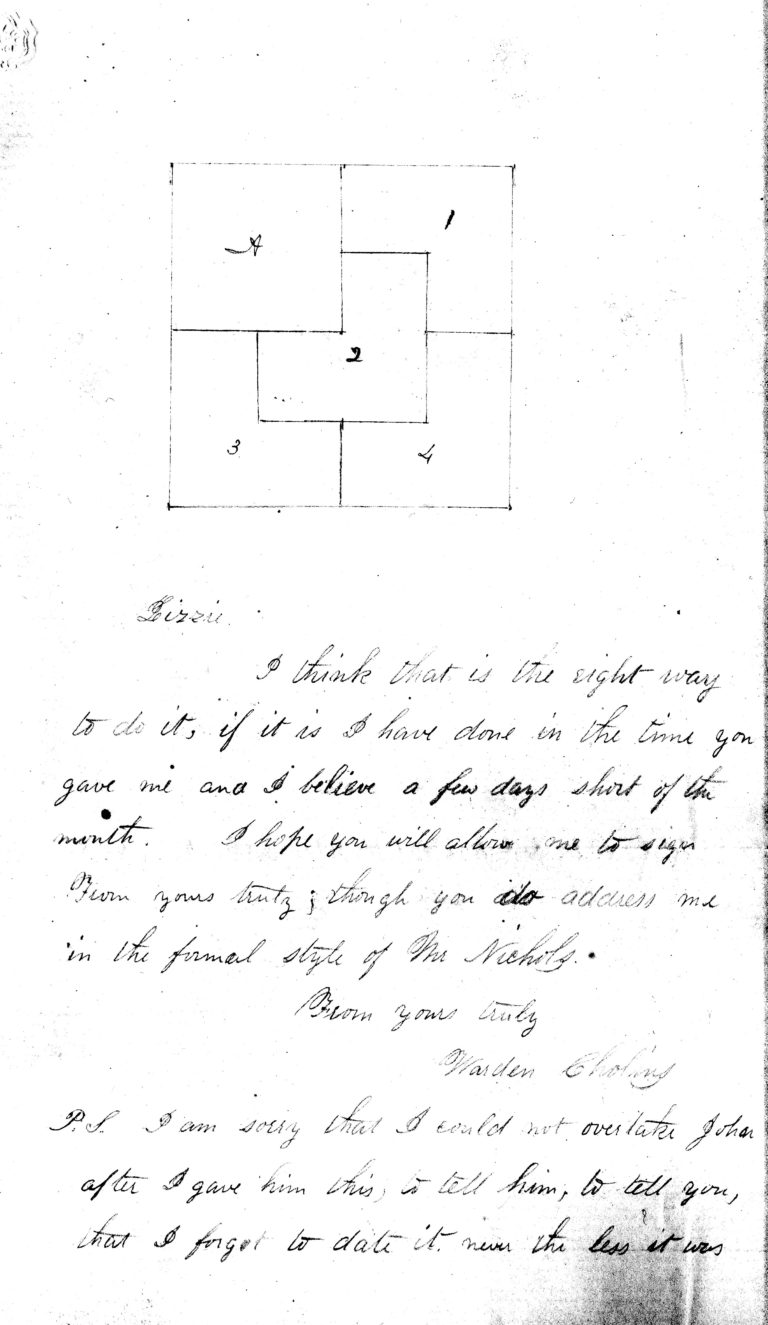 A
1
2
3
4
Lizzie.
I think that is the right way
to do it, if it is I have done in the time you
gave me and I believe a few days short of the
month. I hope you will allow me to sign
From yours truly; though you do address me
in the formal style of Mr Nichols.
From yours truly
Warden
P.S. I am sorry that I could not overtake John
after I gave him this, to tell him, to tell you,
that I forgot to date it. never the less it was